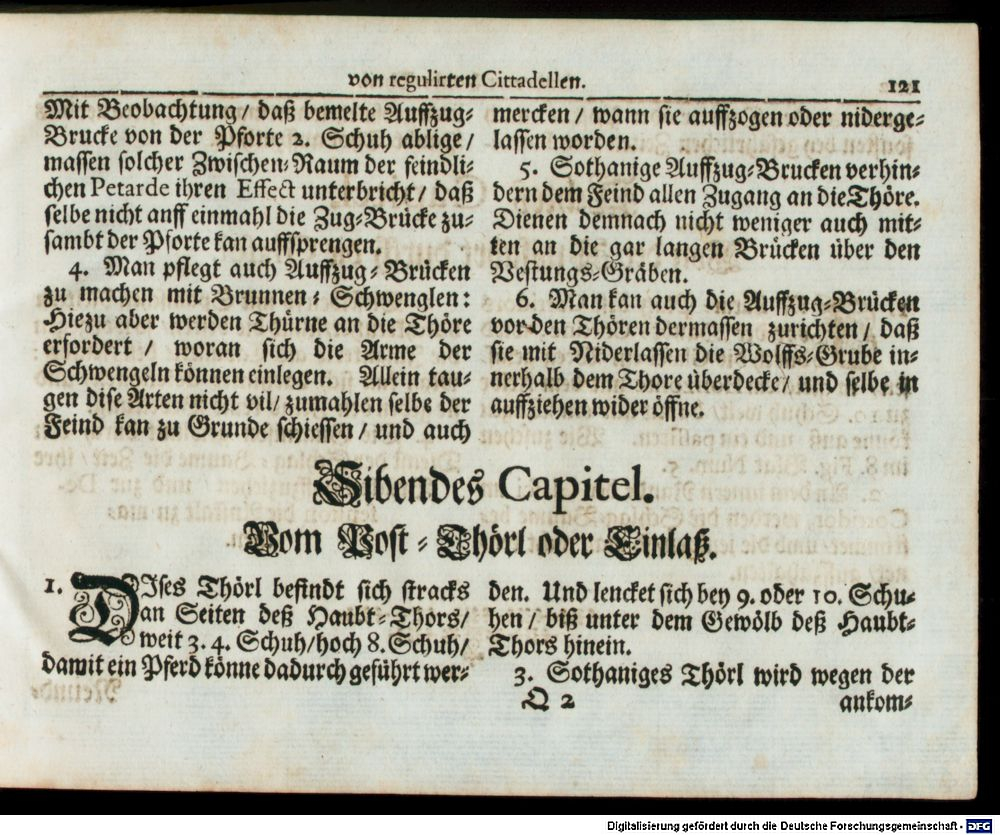 von regulirten Cittadellen. 121
Mit Beobachtung / daß bemelte Auffzug-
Brucke von der Pforte 2. Schuh ablige /
massen solcher Zwischen-Raum der feindli-
chen Petarde ihren Effect unterbricht / daß
selbe nicht anff einmahl die Zug-Brücke zu-
sambt der Pforte kan auffsprengen.
4. Man pflegt auch Auffzug-Brücken
zu machen mit Brunnen-Schwenglen:
Hiezu aber werden Thürne an die Thöre
erfordert / woran sich die Arme der
Schwengeln können einlegen. Allein tau-
gen dise Arten nicht vil / zumahlen selbe der
Feind kan zu Grunde schiessen / und auch
mercken / wann sie auffzogen oder niderge-
lassen worden.
5. Sothanige Auffzug-Brucken verhin-
dern dem Feind allen Zugang an die Thöre.
Dienen demnach nicht weniger auch mit-
ten an die gar langen Brücken über den
Vestungs-Gräben.
6. Man kan auch die Auffzug-Brücken
vor den Thören dermassen zurichten / daß
sie mit Niderlassen die Wolffs-Grube in-
nerhalb dem Thore überdecke / und selbe in
auffziehen wider öffne.
Sibendes Capitel.
Vom Post-Thörl oder Einlaß.
1. DIses Thörl befindt sich stracks
an Seiten deß Haubt-Thors /
weit 3. 4. Schuh / hoch 8. Schuh /
damit ein Pferd könne dadurch geführt wer-
den. Und lencket sich bey 9. oder 10. Schu-
hen / biß unter dem Gewölb deß Haubt-
Thors hinein.
3. Sothaniges Thörl wird wegen der
Q 2 ankom-
Digitalisierung gefördert durch die Deutsche Forschungsgemeinschaft - DFG